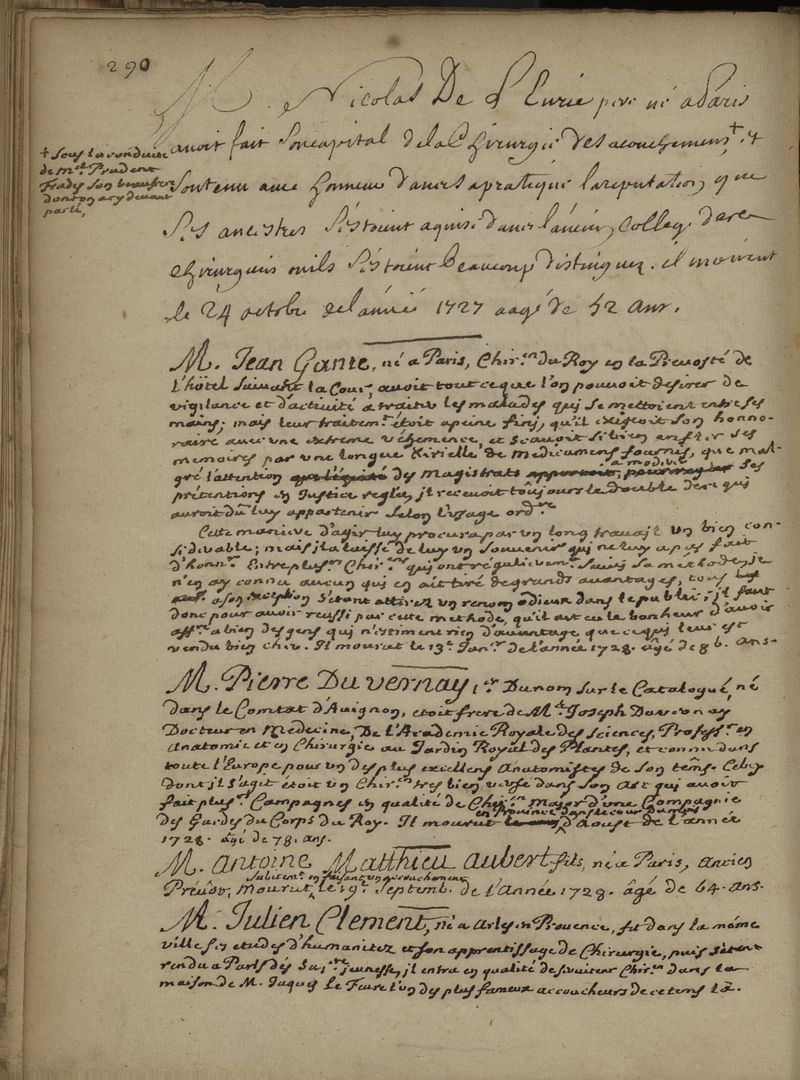 290
M. Nicolas De L'Eurie pere né a Paris
avoit fait son capital de la Chirurgie des acouchemens,+ et
+ Sous la conduite
de Mr. Prudent
son beaufrere
dont on a cy devant
parlé,
soutenu avec honneur dans sa pratique la reputation que
ses ancestres s'estoient aquise dans l'ancien College de
Chirurgiens ou ils s'estoient beaucoup distinguez. il mourut
le 24 octobre de l'année 1727 aagé de 52 ans.
M. Jean Gante, né a Paris, Chir.en du Roy en la Prevosté de
l'hôtel suivant la Cour, avoit tout ce que l'on pouvoit desirer de
vigilance et d'activité a traiter les malades qui se mettoient entre ses
mains; mais leur traitem.t étoit a peine fini, qu'il exigeoit son hono-
raire avec une extreme véhemence, et scavoit si bien enfler ses
memoires par une longue Kirielle de medicamens fournis, que mal-
gré l'attention des Magistrats a modiver ses
prétentions en Justice reglée, il recevoit toûjours le double de ce qui
auroit dû luy appartenir selon l'usage ord.re
Cette maniere d'agir luy procura par un long travail un bien con-
siderable; mais il a laissé de luy un souvenir qui ne luy a pas fait
d'honn.r Entre plus.rs Chir.ens qui ont régulierem.t suivi sa methode, je
n'en ay connu aucun qui en ait tiré de grands avantages, tous
a son exception s'étant attirez un renom odieux dans le public; il faut
donc pour avoir reussi par cette methode, qu'il ait eu le bonheur d'avoir
aff.re a bien des gens qui n'estiment rien d'avantage, que ce qui leur est
vendu bien cher. Il mourut le 13.e Janv.r de l'année 1728. âgé de 86. ans.
M. Pierre Du vernay, 1.er Du nom sur le Catalogue, né
dans le Comtat d'Avignon, etoit frere de M.r Joseph Duvernay
Docteur en Medecine, De l'Academie Royale des Sciences, Profess.r en
Anatomie et en Chirurgie au Jardin Royal des Plantes, et connu dans
toute l'Europe pour un des plus excellens Anatomistes de son têms. Celuy
dont il s'agit étoit un Chir.en tres bien versé dans son Art qui avoit
fait plus.rs Campagnes en qualité de Chir.en Major d'une Compagnie
des Gardes du Corps du Roy. Il mourut en Provence dans le cour du mois d'Aoust de l'année
1728. âgé de 78. ans.
M. Antoine Matthieu Aubert fils, né a Paris, Ancien
Prevôt, mourut subitem.t en faisant un accouchement le 19.e Septemb. de l'Année 1728. âgé de 64. ans.
M. Julien Clement, né a Arles en Provence, fit dans la même
ville ses etudes d'humanitez et son apprentissage de Chirurgie, puis s'étant
rendu a Paris dés sa jeunesse, il entra en qualité de serviteur Chir.en dans la
maison de M. Jaques Le Fevre l'un des plus fameux accoucheurs de ce tems là.